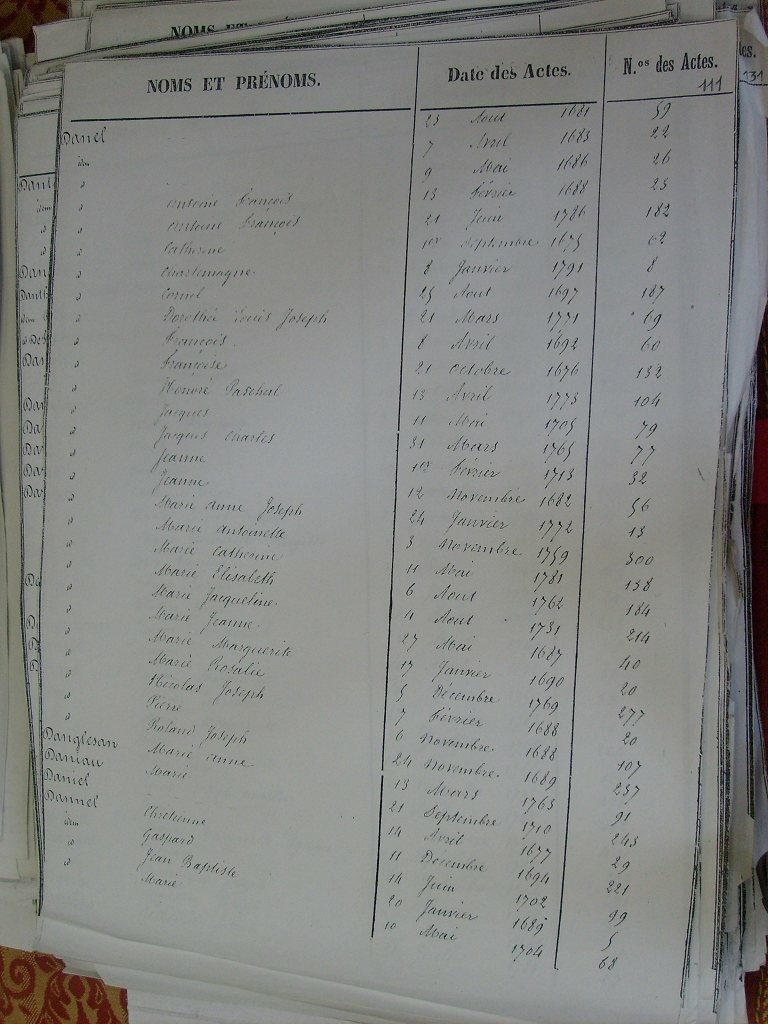 NOMS ET PRÉNOMS. Date des Actes. N.os des Actes.
111
131
Danel 23 Aout 1681 59
idm 7 Avril 1683 22
d 9 Mai 1686 26
d Antoine François 13 Février 1688 23
d Antoine François 21 Juin 1786 182
d Catherine 1er Septembre 1675 62
d Charlemagne 8 Janvier 1791 8
d Cornil 25 Aout 1697 187
d Dorothée Louis Joseph 21 Mars 1771 69
d François 8 Avril 1692 60
d Françoise 21 Octobre 1676 132
d Honoré Paschal 13 Avril 1773 104
d Jacques 11 Mai 1705 79
d Jacques Charles 31 Mars 1765 77
d Jeanne 1er Février 1713 32
d Jeanne 12 Novembre 1682 56
d Marie anne Joseph 24 Janvier 1772 13
d Marie antoinette 3 Novembre 1759 300
d Marie Catherine 11 Mai 1781 138
d Marie Elisabeth 6 Aout 1762 184
d Marie Jacqueline 4 Aout 1731 214
d Marie Jeanne 27 Mai 1687 40
d Marie Marguerite 17 Janvier 1690 20
d Marie Rosalie 5 Decembre 1769 277
d Nicolas Joseph 7 Février 1688 20
d Pierre 6 Novembre 1688 107
d Roland Joseph 24 Novembre 1689 237
Danglesan Marie anne 13 Mars 1763 91
Daniau Marie 21 Septembre 1710 243
Daniel 14 Avril 1677 29
Dannel Chretienne 11 Decembre 1694 221
idm Gaspard 14 Juin 1702 99
d Jean Baptiste 20 Janvier 1689 5
d Marie 10 Mai 1704 68